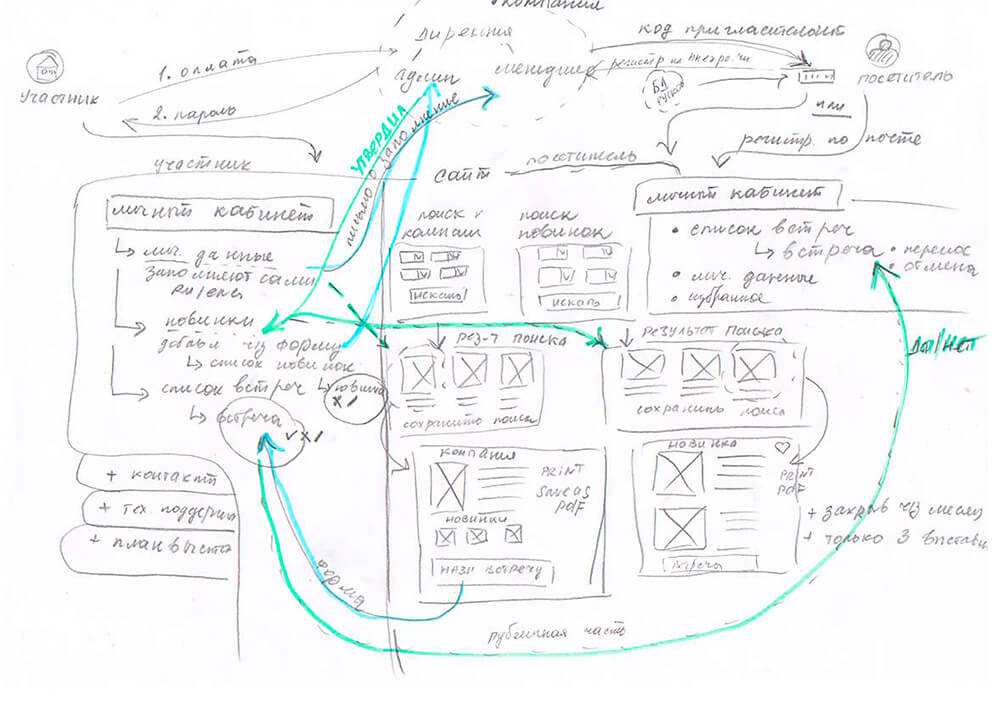 компания
дирекция
админ
менеджер
участник
1. оплата
2. пароль
код пригласительный
регистр на
БД
посетитель
или
регистр. по почте
УТВЕРДИЛ
письмо о заполнение
участник
сайт
посетитель
личный кабинет
лич. данные
заполняют сами
новинки
форму
список новинок
список встреч
новинка
встреча
+ контакты
+ тех. поддерж
+ план выста
поиск
компаи
искать
поиск
новинок
искать
личный кабинет
• список встреч
встреча
• перенос
• отмена
• лич. данные
• избранное
рез-т поиска
сохранить поиск
результат поиска
сохранить поиск
компания
PRiNT
SAVE AS
PDF
новинки
назн встречу
новинка
PRiNT
PDF
встреча
+ закрыв чз месяц
+ только 3 выставк
ДА/НЕТ
форма
публичная часть